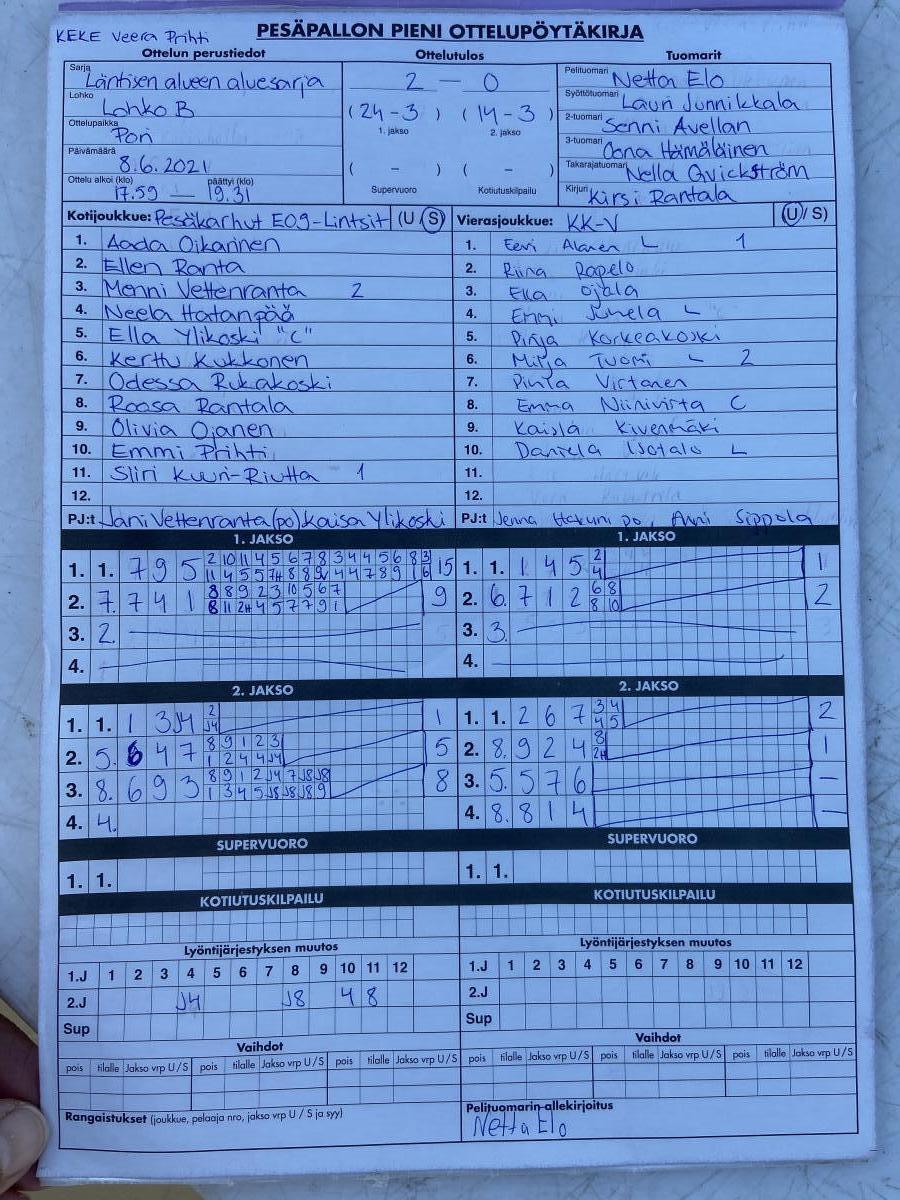 KEKE Veera Prihti
PESÄPALLON PIENI OTTELUPÖYTÄKIRJA
Ottelun perustiedot
Ottelutulos
Tuomarit
Sarja Läntisen alueen aluesarja
2 – 0
Pelituomari Netta Elo
Lohko Lohko B
(24 - 3) (14 - 3)
1. jakso 2. jakso
Syöttötuomari Lauri Junnikkala
Ottelupaikka Pori
2-tuomari Senni Avellan
3-tuomari Oona Hämäläinen
Päivämäärä 8.6.2021
( - ) ( - )
Supervuoro Kotiutuskilpailu
Takarajatuomari Nella Qvickström
Ottelu alkoi (klo) 17.59 — päättyi (klo) 19.31
Kirjuri Kirsi Rantala
Kotijoukkue: Pesäkarhut E09-Lintsit (U S)
Vierasjoukkue: KK-V (U / S)
1. Aada Oikarinen
2. Ellen Ranta
3. Menni Vettenranta 2
4. Neela Hatanpää
5. Ella Ylikoski "C"
6. Kerttu Kukkonen
7. Odessa Rukakoski
8. Roosa Rantala
9. Olivia Ojanen
10. Emmi Prihti
11. Siiri Kuuri-Riutta 1
12.
PJ:t Jani Vettenranta (po) Kaisa Ylikoski
1. Eevi Alanen L 1
2. Riina Rapelo
3. Ella Ojala
4. Emmi Juhela L
5. Pinja Korkeakoski
6. Milja Tuomi L 2
7. Pinja Virtanen
8. Emma Niinivirta C
9. Kaisla Kivenmäki
10. Daniela Isotalo L
11.
12.
PJ:t Jenna po, Anni Sippola
1. JAKSO
1. 1. 7 9 5 2 10 11 4 5 6 7 8 3 4 4 5 6 8 15
2. 7. 7 4 1 8 8 9 2 3 10 5 6 7 9
8 11 2H 4 5 7 7 9 1
3. 2.
4.
1. JAKSO
1. 1. 1 4 5 2 1
4
2. 6. 7 1 2 6 8 2
8 10
3. 3.
4.
2. JAKSO
1. 1. 1 3 J4 2 1
J4
2. 5. 6 4 7 8 9 1 2 3 5
1 2 4 4 J4
3. 8. 6 9 3 8 9 1 2 J4 7 J8 J8 8
1 3 4 5 J8 J8 J8 9
4. 4.
2. JAKSO
1. 1. 2 6 7 3 4 2
4 5
2. 8. 9 2 4 8 1
2H
3. 5. 5 7 6 –
4. 8. 8 1 4 –
SUPERVUORO
1. 1.
SUPERVUORO
1. 1.
KOTIUTUSKILPAILU
KOTIUTUSKILPAILU
Lyöntijärjestyksen muutos
1.J 1 2 3 4 5 6 7 8 9 10 11 12
2.J J4 J8 4 8
Sup
Lyöntijärjestyksen muutos
1.J 1 2 3 4 5 6 7 8 9 10 11 12
2.J
Sup
Vaihdot
pois tilalle Jakso vrp U/S pois tilalle Jakso vrp U/S pois tilalle Jakso vrp U/S
Vaihdot
pois tilalle Jakso vrp U/S pois tilalle Jakso vrp U/S pois tilalle Jakso vrp U/S
Rangaistukset (joukkue, pelaaja nro, jakso vrp U / S ja syy)
Pelituomarin allekirjoitus
Netta Elo